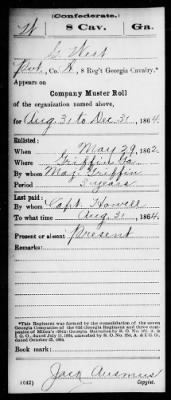 (Confederate.)
W 8 Cav. Ga.
West
Pvt, Co. K, 8 Reg't Georgia Cavalry.*
Appears on
Company Muster Roll
of the organization named above,
for Aug 31 to Dec 31, 1864.
Enlisted:
When May 29, 1862
Where Griffin Ga
By whom Maj. Griffin
Period 3 years
Last paid:
By whom Capt. Howell
To what time Aug 31, 1864.
Present or absent Present
Remarks:
*This Regiment was formed by the consolidation of the seven Georgia Companies of the 62d Georgia Regiment and three companies of
Book mark:
Jack Ausmus
(642) Copyist.